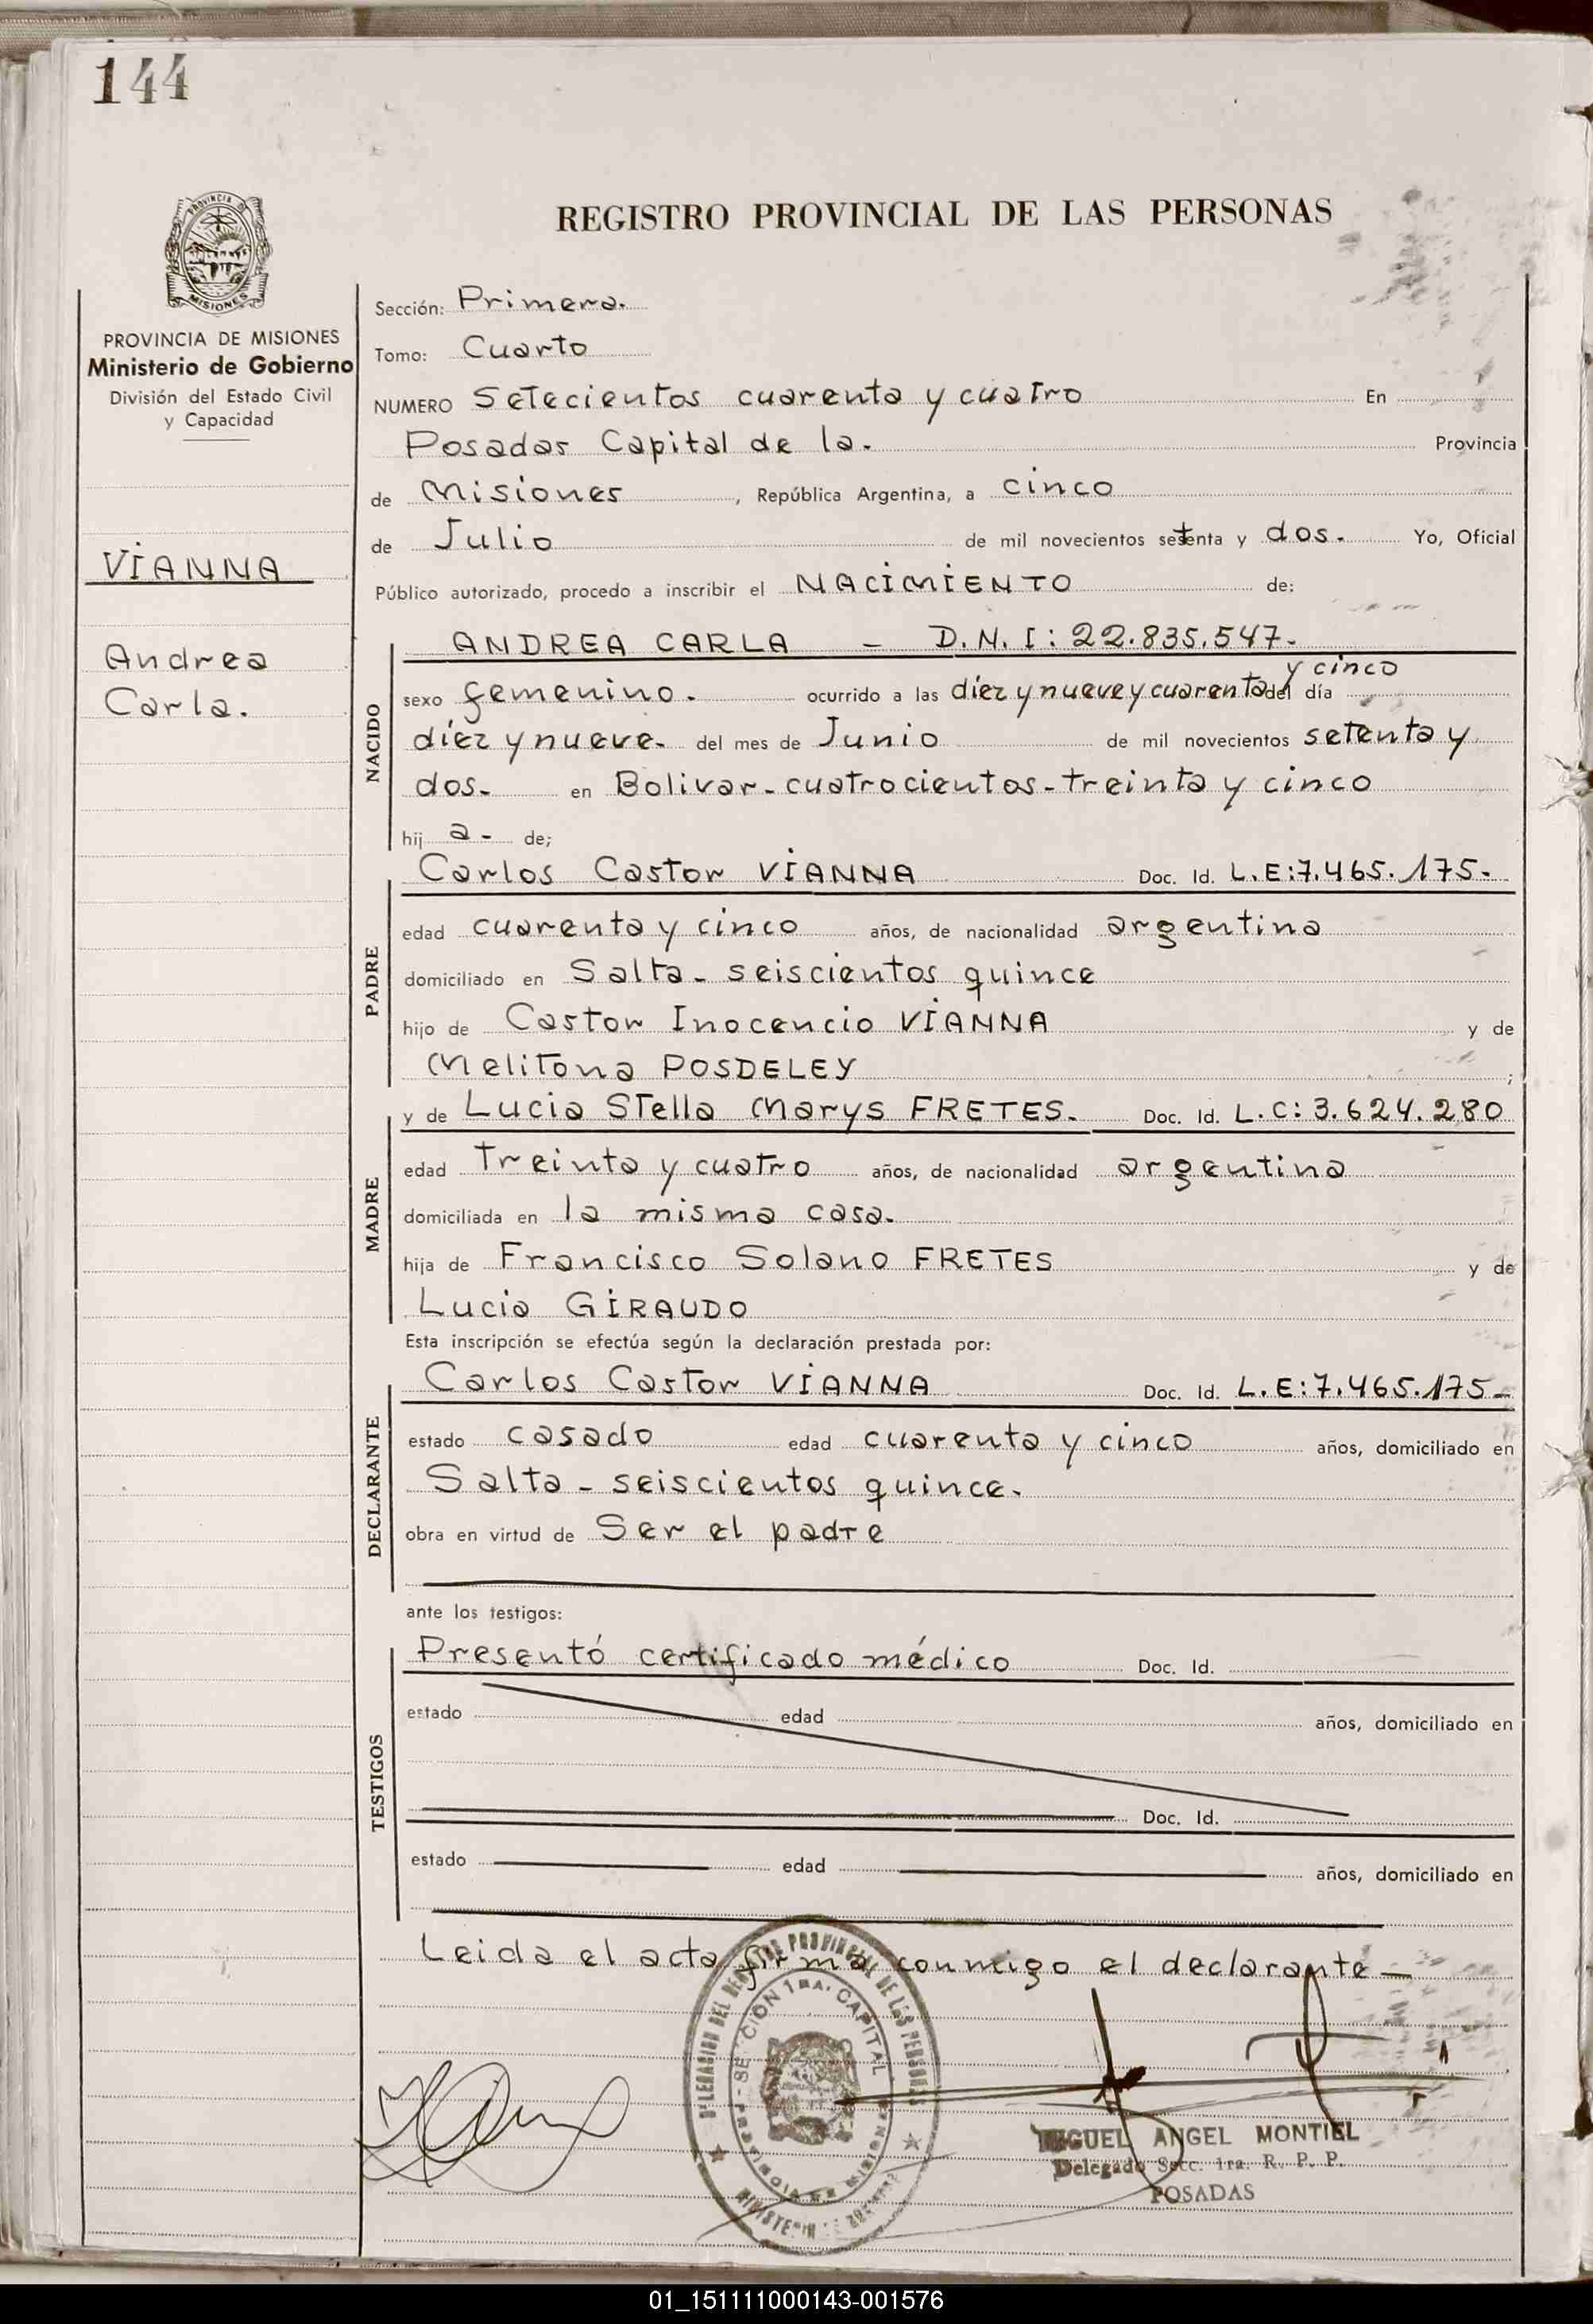 144
PROVINCIA DE
MISIONES
REGISTRO PROVINCIAL DE LAS PERSONAS
PROVINCIA DE MISIONES
Ministerio de Gobierno
División del Estado Civil
y Capacidad
VIANNA
Andrea
Carla.
Sección: Primera.
Tomo: Cuarto
NUMERO Setecientos cuarenta y cuatro En
Posadas Capital de la. Provincia
de Misiones, República Argentina, a cinco
de Julio de mil novecientos setenta y dos. Yo, Oficial
Público autorizado, procedo a inscribir el NACIMIENTO de:
NACIDO
ANDREA CARLA - D.N.I: 22.835.547-
y cinco
sexo femenino. ocurrido a las diez y nueve y cuarenta del día
diez y nueve. del mes de Junio de mil novecientos setenta y
dos. en Bolivar-cuatrocientos-treinta y cinco
hij a- de;
PADRE
Carlos Castor VIANNA Doc. Id. L.E:7.465.175-
edad cuarenta y cinco años, de nacionalidad argentina
domiciliado en Salta-seiscientos quince
hijo de Castor Inocencio VIANNA y de
Melitona POSDELEY ;
MADRE
y de Lucia Stella Marys FRETES. Doc. Id. L.C: 3.624.280
edad treinta y cuatro años, de nacionalidad argentina
domiciliada en la misma casa.
hija de Francisco Solano FRETES y de
Lucia GIRAUDO
Esta inscripción se efectúa según la declaración prestada por:
DECLARANTE
Carlos Castor VIANNA Doc. Id. L.E:7.465.175-
estado casado edad cuarenta y cinco años, domiciliado en
Salta-seiscientos quince.
obra en virtud de Ser el padre
ante los testigos:
TESTIGOS
Presentó certificado médico Doc. Id.
estado edad años, domiciliado en
Doc. Id.
estado edad años, domiciliado en
Leida el acta firma conmigo el declarante-
DELEGACION DEL REGISTRO PROVINCIAL DE LAS PERSONAS
SECCION 1RA. CAPITAL
MIGUEL ANGEL MONTIEL
Delegado Secc. 1ra. R. P. P.
POSADAS
01_151111000143-001576